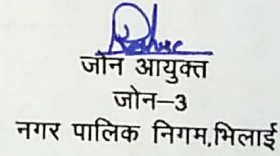 जोन आयुक्त
जोन-3
नगर पालिक निगम,भिलाई